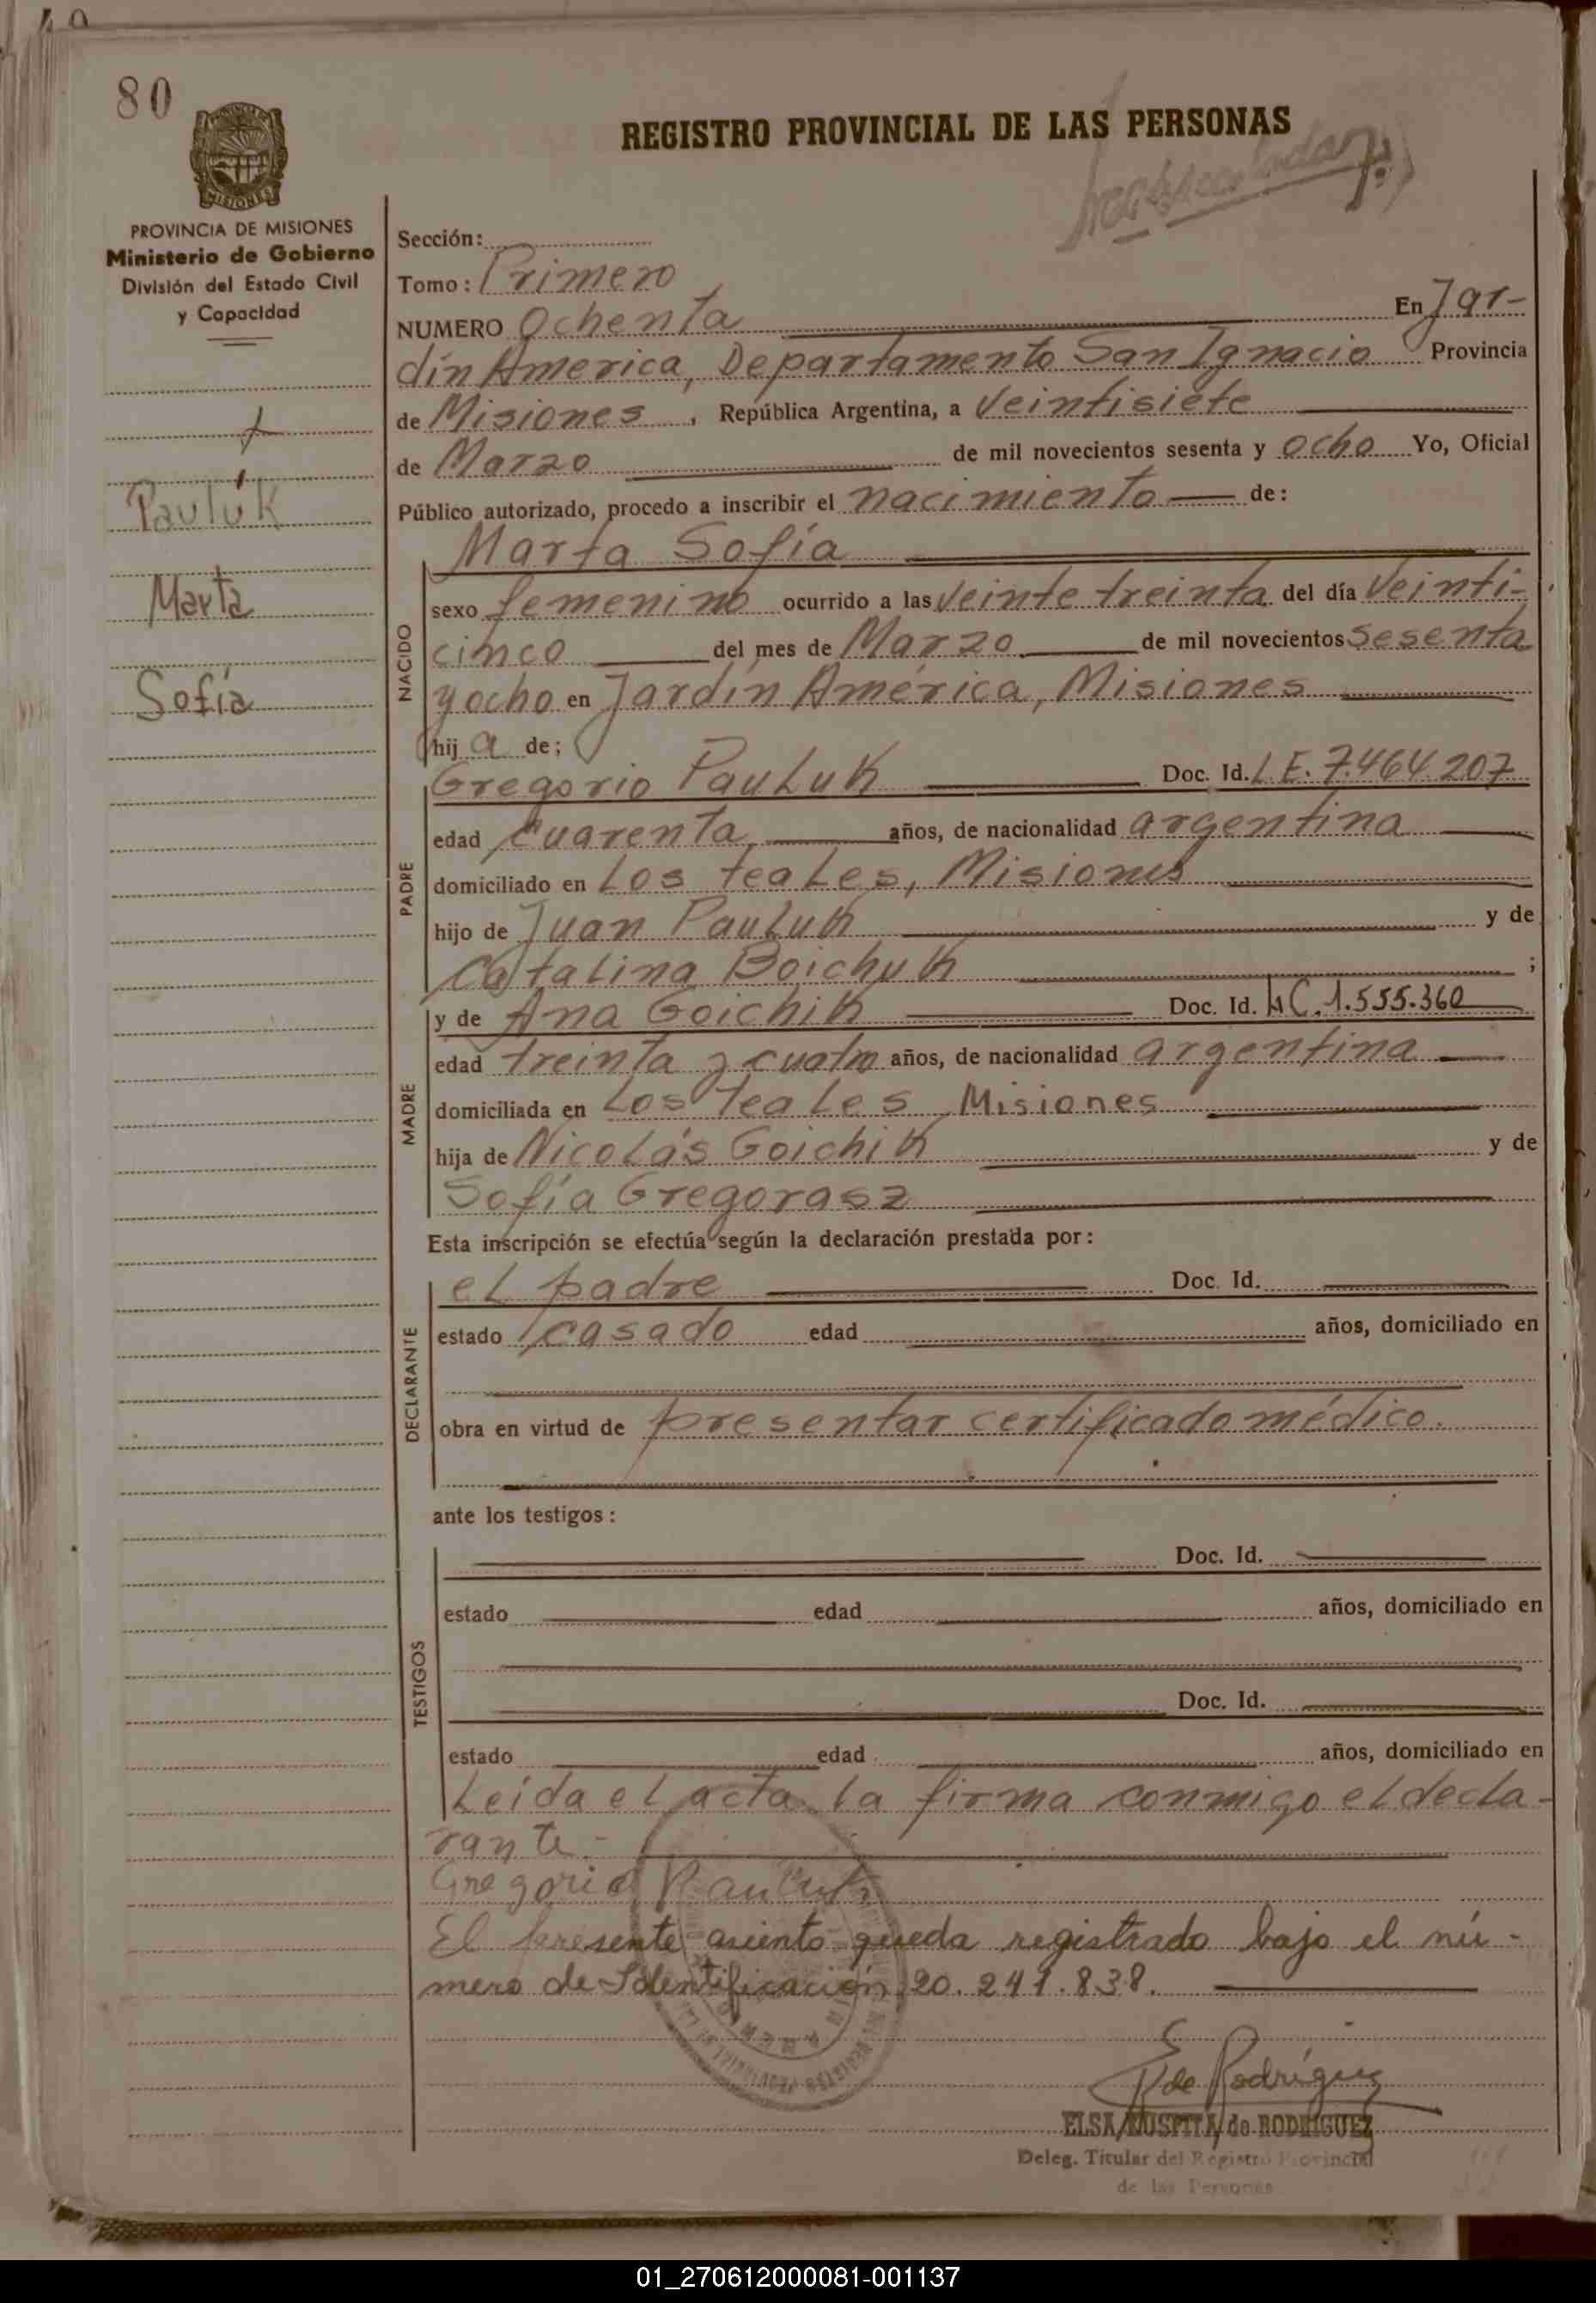 80
REGISTRO PROVINCIAL DE LAS PERSONAS
PROVINCIA DE MISIONES
Ministerio de Gobierno
División del Estado Civil
y Capacidad
Pauluk
Marta
Sofía
Sección:
Tomo: Primero
NUMERO Ochenta En Jar-
dín America, Departamento San Ignacio Provincia
de Misiones, República Argentina, a Veintisiete
de Marzo de mil novecientos sesenta y ocho Yo, Oficial
Público autorizado, procedo a inscribir el nacimiento de:
Marta Sofía
NACIDO
sexo femenino ocurrido a las veinte treinta del día Veinti-
cinco del mes de Marzo de mil novecientos sesenta
y ocho en Jardín América, Misiones
hija de;
PADRE
Gregorio Pauluk Doc. Id. L.E. 7.464.207
edad cuarenta años, de nacionalidad argentina
domiciliado en Los teales, Misiones
hijo de Juan Pauluk y de
Catalina Boichuk ;
MADRE
y de Ana Goichik Doc. Id. 1.555.360
edad treinta y cuatro años, de nacionalidad argentina
domiciliada en Los Teales, Misiones
hija de Nicolás Goichik y de
Sofía Gregorasz
Esta inscripción se efectúa según la declaración prestada por:
DECLARANTE
el padre Doc. Id.
estado casado edad años, domiciliado en
obra en virtud de presentar certificado médico.
ante los testigos:
TESTIGOS
Doc. Id.
estado edad años, domiciliado en
Doc. Id.
estado edad años, domiciliado en
Leída el acta la firma conmigo el decla-
rante.-
Gregorio Pauluk
El presente asiento queda registrado bajo el nú-
mero de Identificación 20.241.838.
E de Rodríguez
ELSA de RODRIGUEZ
Deleg. Titular del Registro Provincial
de las Personas
01_270612000081-001137